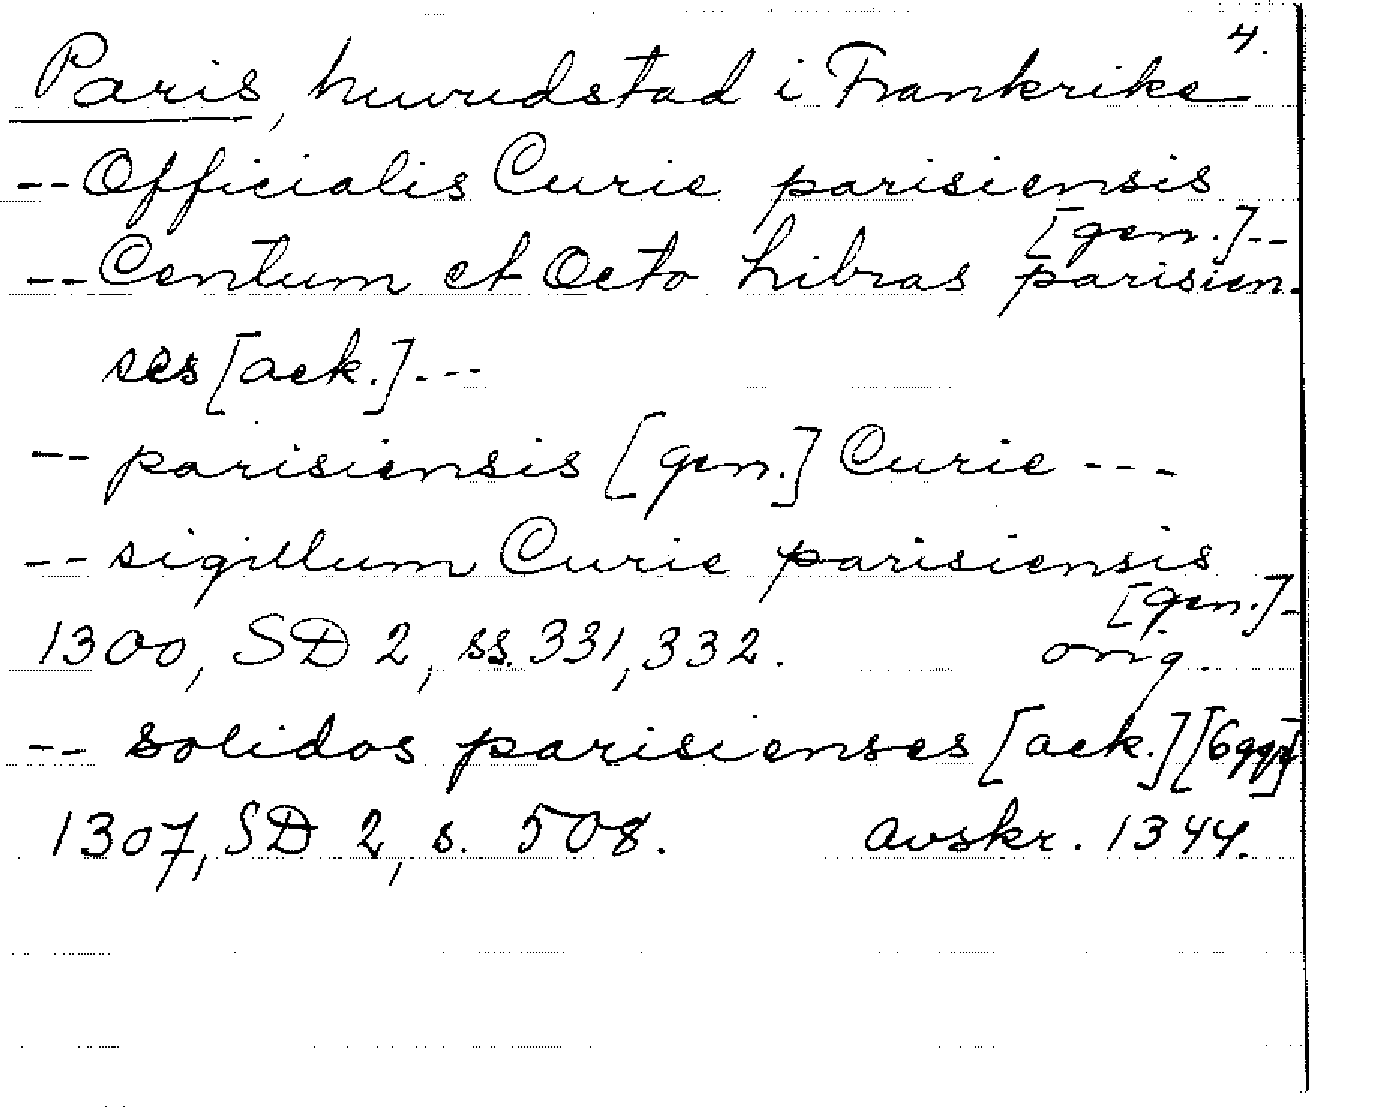 4.
Paris, huvudstad i Frankrike
-- Officialis Curie parisiensis
[gen.]--
-- Centum et Octo Libras parisien-
ses [ack.]---
-- parisiensis [gen.] Curie ---
-- sigillum Curie parisiensis
[gen.]-
1300, SD 2, ss. 331, 332. orig.
-- solidos parisienses [ack.] [6ggr]
1307, SD 2, s. 508. avskr. 1344.